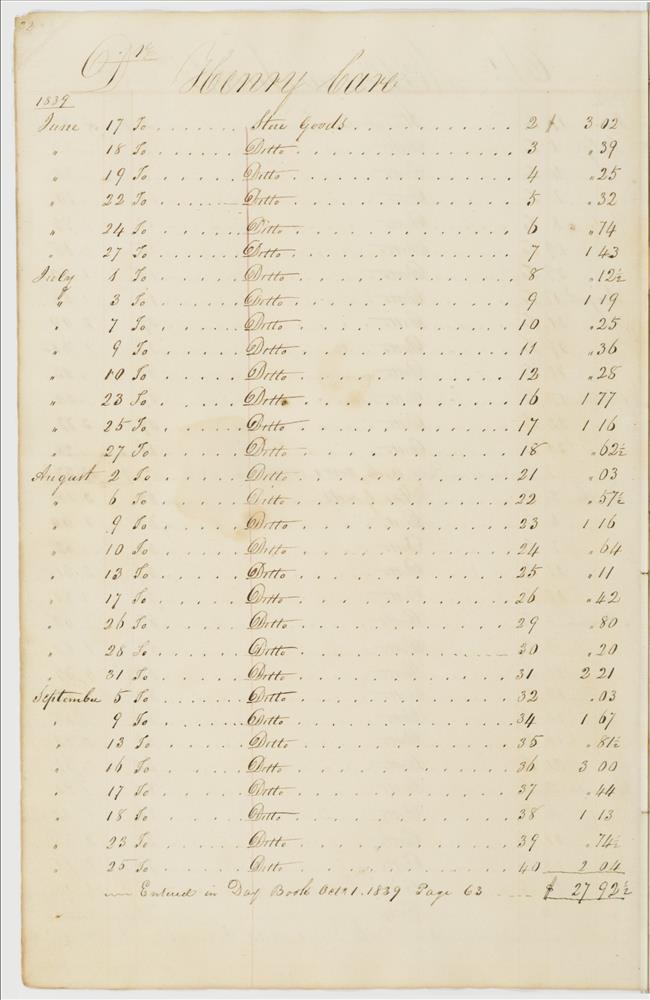 Dr
Henry Care
1839
June 17 To . . . . . . . Store Goods . . . . . . . . . . . 2 $ 3 02
" 18 To . . . . . . Ditto . . . . . . . . . . . . 3 " 39
" 19 To . . . . . . Ditto . . . . . . . . . . . . 4 " 25
" 22 To . . . . . . Ditto . . . . . . . . . . . . 5 " 32
" 24 To . . . . . . Ditto . . . . . . . . . . . . 6 " 74
" 27 To . . . . . . Ditto . . . . . . . . . . . . 7 1 43
July 1 To . . . . . . Ditto . . . . . . . . . . . . 8 " 12½
" 3 To . . . . . . Ditto . . . . . . . . . . . . 9 1 19
" 7 To . . . . . . Ditto . . . . . . . . . . . . 10 " 25
" 9 To . . . . . . Ditto . . . . . . . . . . . . 11 " 36
" 10 To . . . . . . Ditto . . . . . . . . . . . . 12 " 28
" 23 To . . . . . . Ditto . . . . . . . . . . . . 16 1 77
" 25 To . . . . . . Ditto . . . . . . . . . . . . 17 1 16
" 27 To . . . . . . Ditto . . . . . . . . . . . . 18 " 62½
August 2 To . . . . . . Ditto . . . . . . . . . . . . 21 " 03
" 6 To . . . . . . Ditto . . . . . . . . . . . . 22 " 57½
" 9 To . . . . . . Ditto . . . . . . . . . . . . 23 1 16
" 10 To . . . . . . Ditto . . . . . . . . . . . . 24 " 64
" 13 To . . . . . . Ditto . . . . . . . . . . . . 25 " 11
" 17 To . . . . . . Ditto . . . . . . . . . . . . 26 " 42
" 26 To . . . . . . Ditto . . . . . . . . . . . . 29 " 80
" 28 To . . . . . . Ditto . . . . . . . . . . . . 30 " 20
" 31 To . . . . . . Ditto . . . . . . . . . . . . 31 2 21
September 5 To . . . . . . Ditto . . . . . . . . . . . . 32 " 03
" 9 To . . . . . . Ditto . . . . . . . . . . . . 34 1 67
" 13 To . . . . . . Ditto . . . . . . . . . . . . 35 " 81½
" 16 To . . . . . . Ditto . . . . . . . . . . . . 36 3 00
" 17 To . . . . . . Ditto . . . . . . . . . . . . 37 " 44
" 18 To . . . . . . Ditto . . . . . . . . . . . . 38 1 13
" 23 To . . . . . . Ditto . . . . . . . . . . . . 39 " 74½
" 25 To . . . . . . Ditto . . . . . . . . . . . . 40 2 04
Entered in Day Book Octr 1. 1839 Page 63 $ 27 92½